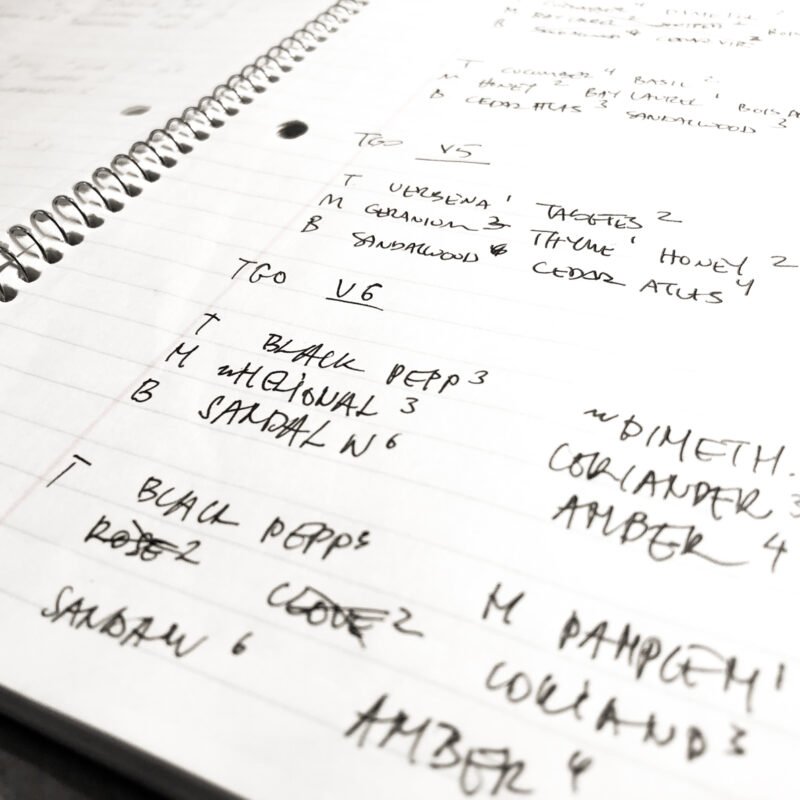 T CUCUMBER 4 BASIL 2
M HONEY 2 BAY LAUREL 1 BOIS
B CEDAR ATLAS 3 SANDALWOOD 3
TGO V5
T VERBENA 1 TAGETES 2
M GERANIUM 3 THYME 1 HONEY 2
B SANDALWOOD CEDAR ATLAS 4
TGO V6
T BLACK PEPP 3
M HELIONAL 3 DIMETH.
B SANDALW 6 CORIANDER 3
AMBER 4
T BLACK PEPP
ROSE 2 CLOVE 2 M PAMPLEM 1
SANDALW 6 CORIAND 3
AMBER 4